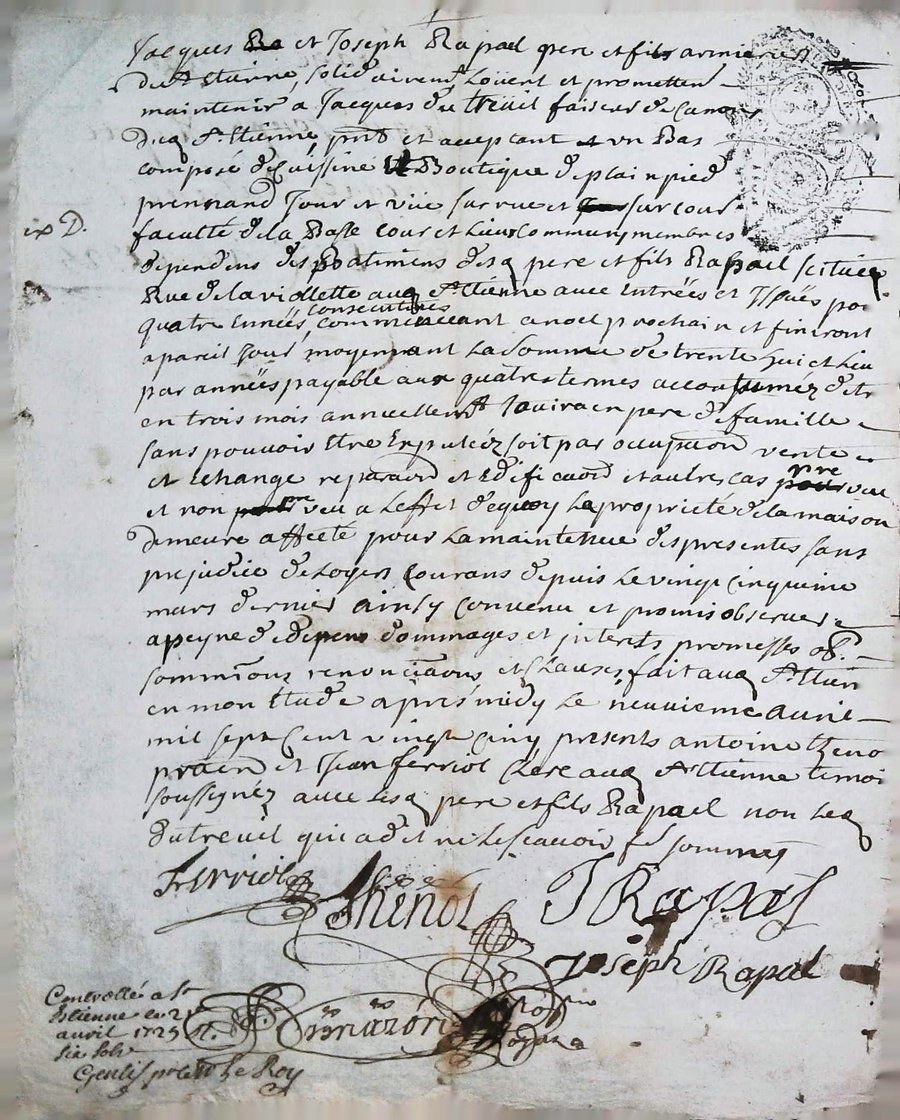 Jacques et Joseph Rapael pere et fils armuriers
de St Etienne, solidairement Louent et promettent
maintenir a Jacques du treuil faiseur de Canons
dud St Etienne, pnt et acceptant un Bas
composé de Cuissine et Boutique de plain pied
prennand Jour et vüe sur rue et sur cour
faculté de la Basse Cour et Lieux Communs membres
ix D.
dependens des Batimens desd pere et fils Rapael scituée
Rue de la viollette aud St Etienne avec Entrées et Issuës pour
quatre Années consecutives commenceant a noel prochain et finiront
a pareil Jour moyennant La Somme de trente huit Liv
par années payable aux quatre termes accoutumez de
en trois mois annuellemt Jouira en pere de famille
sans pouvoir Etre Expulcéz soit par occupaon vente
et Echange reparaon et Edificaon et autres cas pre veu
et non pre veu a Leffet de quoy La proprieté de la maison
demeure affecté pour La maintenue des presentes sans
prejudice de Loyers Courans depuis Le vingt cinquieme
mars dernier ainsy Convenu et promis observer
a peyne de depens dommages et interets promesses ob.
sommions renonciaons et Clauses, fait aud St Etien
en mon Etude aprés midy Le neuvieme avril
mil sept Cent vingt Cinq presents antoine theno
praen et Jean ferriol Clerc aud St Etienne temoi
soussignez avec Lesd pere et fils Rapael non Led
dutreuil qui a dit ne Le scavoir de sommes
Ferriol
Thenot
J Rapael
Joseph Rapael
Controllé a St
Etienne le 21
avril 1725
six sols
Gentil
Le Roy